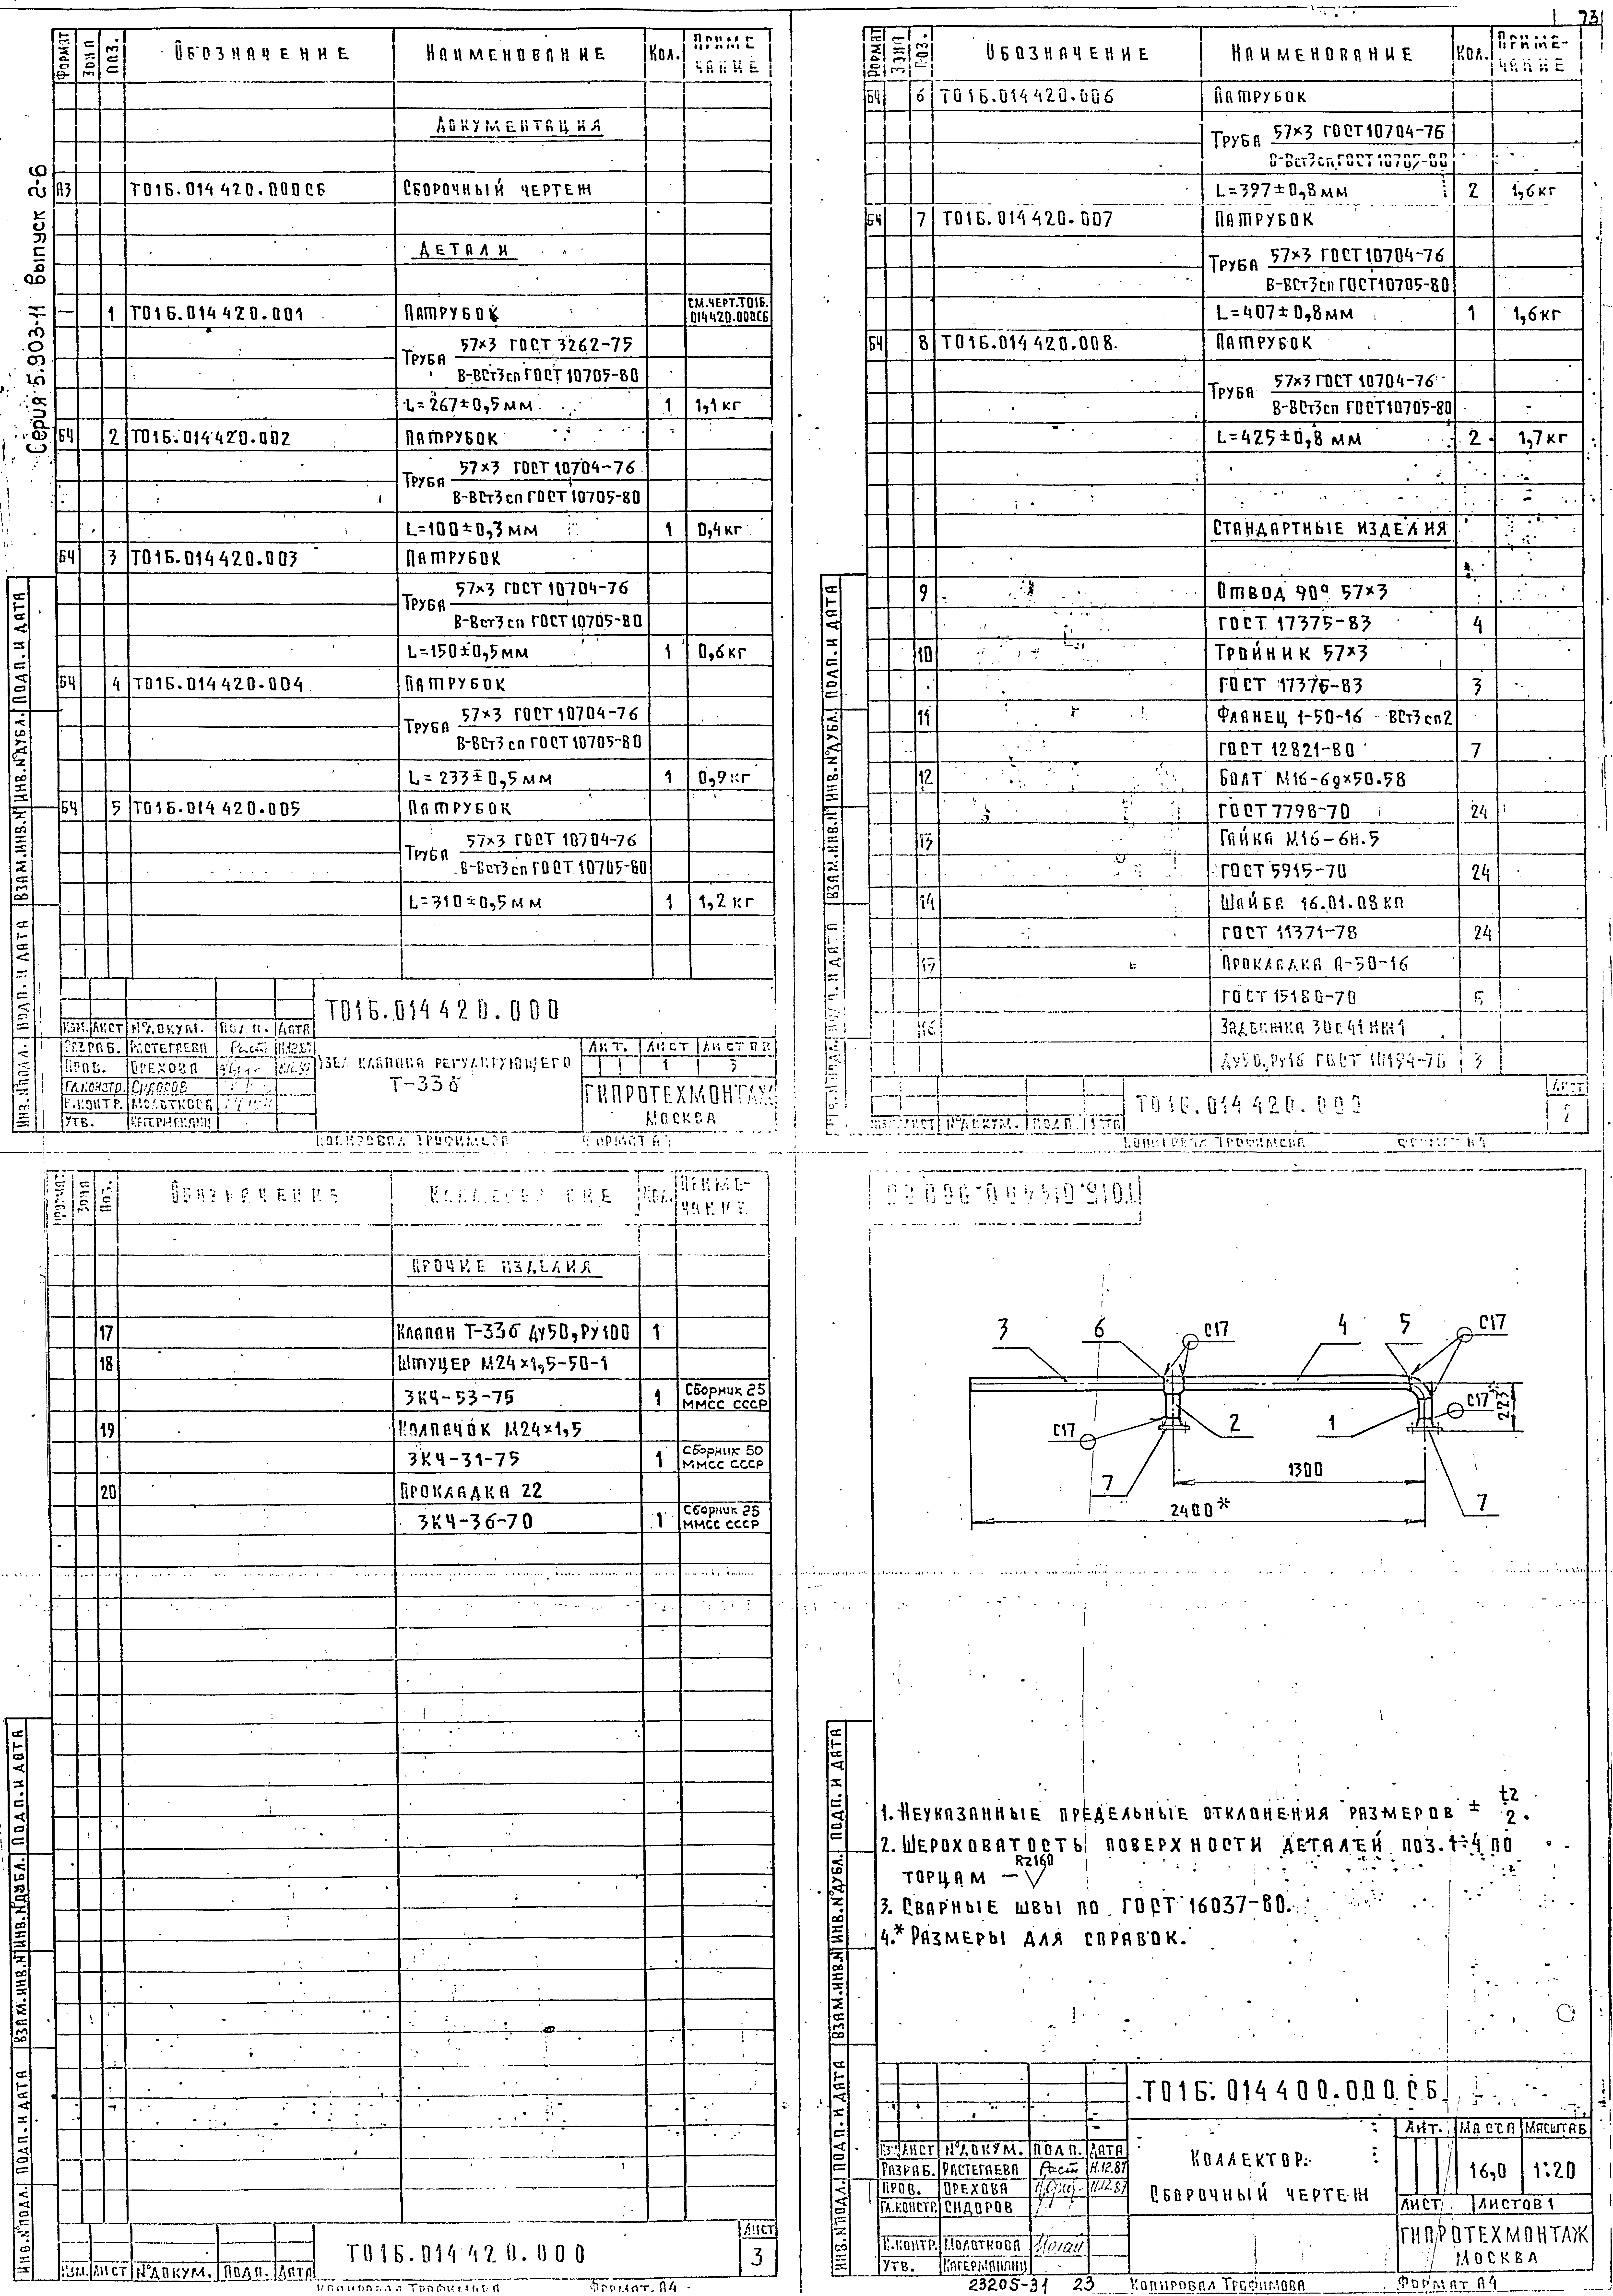 73
Серия 5.903-11 Выпуск 2-6
ФОРМАТ ЗОНА ПОЗ. ОБОЗНАЧЕНИЕ НАИМЕНОВАНИЕ КОЛ. ПРИМЕЧАНИЕ
ДОКУМЕНТАЦИЯ
А3 Т01Б.014420.000СБ СБОРОЧНЫЙ ЧЕРТЕЖ
ДЕТАЛИ
— 1 Т01Б.014420.001 ПАТРУБОК СМ.ЧЕРТ.Т01Б.014420.000СБ
ТРУБА 57×3 ГОСТ 3262-75
В-ВСт3сп ГОСТ 10705-80
L=267±0,5мм 1 1,1кг
БЧ 2 Т01Б.014420.002 ПАТРУБОК
ТРУБА 57×3 ГОСТ 10704-76
В-ВСт3сп ГОСТ 10705-80
L=100±0,3мм 1 0,4кг
БЧ 3 Т01Б.014420.003 ПАТРУБОК
ТРУБА 57×3 ГОСТ 10704-76
В-ВСт3сп ГОСТ 10705-80
L=150±0,5мм 1 0,6кг
БЧ 4 Т01Б.014420.004 ПАТРУБОК
ТРУБА 57×3 ГОСТ 10704-76
В-ВСт3сп ГОСТ 10705-80
L=233±0,5мм 1 0,9кг
БЧ 5 Т01Б.014420.005 ПАТРУБОК
ТРУБА 57×3 ГОСТ 10704-76
В-ВСт3сп ГОСТ 10705-80
L=310±0,5мм 1 1,2кг
ИНВ.№ПОДЛ. ПОДП. И ДАТА ВЗАМ.ИНВ.№ ИНВ.№ДУБЛ. ПОДП. И ДАТА
Т01Б.014420.000
ИЗМ. ЛИСТ №ДОКУМ. ПОДП. ДАТА
РАЗРАБ. РАСТЕГАЕВА
ПРОВ. ОРЕХОВА
ГЛ.КОНСТР. СИДОРОВ
Н.КОНТР. МОЛОТКОВА
УТВ.
УЗЕЛ КЛАПАНА РЕГУЛИРУЮЩЕГО
Т-33б
ЛИТ. ЛИСТ ЛИСТОВ
1 3
ГИПРОТЕХМОНТАЖ
МОСКВА
КОПИРОВАЛ ТРОФИМОВА ФОРМАТ А4
ФОРМАТ ЗОНА ПОЗ. ОБОЗНАЧЕНИЕ НАИМЕНОВАНИЕ КОЛ. ПРИМЕ-ЧАНИЕ
БЧ 6 Т01Б.014420.006 ПАТРУБОК
ТРУБА 57×3 ГОСТ 10704-76
В-ВСт3сп ГОСТ 10705-80
L=397±0,8мм 2 1,6кг
БЧ 7 Т01Б.014420.007 ПАТРУБОК
ТРУБА 57×3 ГОСТ 10704-76
В-ВСт3сп ГОСТ 10705-80
L=407±0,8мм 1 1,6кг
БЧ 8 Т01Б.014420.008 ПАТРУБОК
ТРУБА 57×3 ГОСТ 10704-76
В-ВСт3сп ГОСТ 10705-80
L=425±0,8мм 2 1,7кг
СТАНДАРТНЫЕ ИЗДЕЛИЯ
9 ОТВОД 90° 57×3
ГОСТ 17375-83 4
10 ТРОЙНИК 57×3
ГОСТ 17376-83 3
11 ФЛАНЕЦ 1-50-16 ВСт3сп2
ГОСТ 12821-80 7
12 БОЛТ М16-6g×50.58
ГОСТ 7798-70 24
13 ГАЙКА М16-6Н.5
ГОСТ 5915-70 24
14 ШАЙБА 16.01.08кп
ГОСТ 11371-78 24
15 ПРОКЛАДКА А-50-16
ГОСТ 15180-70 6
16 ЗАДВИЖКА 30с41нж1
Ду50,Ру16 ГОСТ 10194-78 3
ПОДП. И ДАТА ВЗАМ.ИНВ.№ ИНВ.№ДУБЛ. ПОДП. И ДАТА
ЛИСТ №ДОКУМ. ПОДП. ДАТА
Т01Б.014420.000
ЛИСТ
2
КОПИРОВАЛ ТРОФИМОВА ФОРМАТ А4
ФОРМАТ ЗОНА ПОЗ. ОБОЗНАЧЕНИЕ НАИМЕНОВАНИЕ КОЛ. ПРИМЕ-ЧАНИЕ
ПРОЧИЕ ИЗДЕЛИЯ
17 КЛАПАН Т-33б Ду50,Ру100 1
18 ШТУЦЕР М24×1,5-50-1
ЗК4-53-75 1 Сборник 25 ММСС СССР
19 КОЛПАЧОК М24×1,5
ЗК4-31-75 1 Сборник 50 ММСС СССР
20 ПРОКЛАДКА 22
ЗК4-36-70 1 Сборник 25 ММСС СССР
ИНВ.№ПОДЛ. ПОДП. И ДАТА ВЗАМ.ИНВ.№ ИНВ.№ДУБЛ. ПОДП. И ДАТА
ИЗМ. ЛИСТ №ДОКУМ. ПОДП. ДАТА
Т01Б.014420.000
ЛИСТ
3
КОПИРОВАЛ ТРОФИМОВА ФОРМАТ А4
3 6 С17 4 5 С17
С17 2 1 С17 223*
7 1300 7
2400*
1. НЕУКАЗАННЫЕ ПРЕДЕЛЬНЫЕ ОТКЛОНЕНИЯ РАЗМЕРОВ ± t2/2.
2. ШЕРОХОВАТОСТЬ ПОВЕРХНОСТИ ДЕТАЛЕЙ ПОЗ.1÷4 ПО
ТОРЦАМ — Rz160
3. СВАРНЫЕ ШВЫ ПО ГОСТ 16037-80.
4.* РАЗМЕРЫ ДЛЯ СПРАВОК.
ИНВ.№ПОДЛ. ПОДП. И ДАТА ВЗАМ.ИНВ.№ ИНВ.№ДУБЛ. ПОДП. И ДАТА
Т01Б.014400.000СБ
ИЗМ. ЛИСТ №ДОКУМ. ПОДП. ДАТА
РАЗРАБ. РАСТЕГАЕВА 11.12.87
ПРОВ. ОРЕХОВА 11.12.87
ГЛ.КОНСТР. СИДОРОВ
Н.КОНТР. МОЛОТКОВА
УТВ.
КОЛЛЕКТОР.
СБОРОЧНЫЙ ЧЕРТЕЖ
ЛИТ. МАССА МАСШТАБ
16,0 1:20
ЛИСТ ЛИСТОВ 1
ГИПРОТЕХМОНТАЖ
МОСКВА
23205-31 23 КОПИРОВАЛ ТРОФИМОВА ФОРМАТ А4